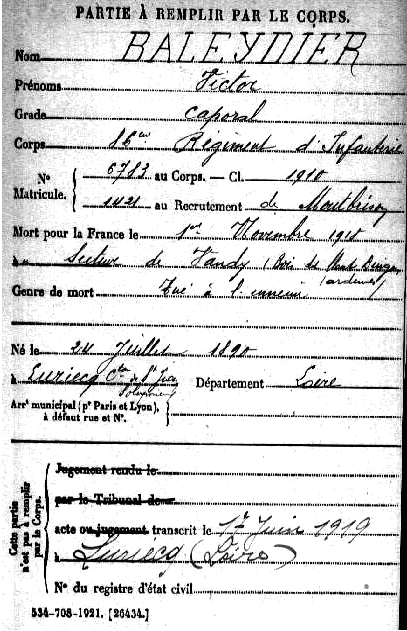 PARTIE À REMPLIR PAR LE CORPS.
Nom BALEYDIER
Prénoms Victor
Grade caporal
Corps 86me Régiment d'Infanterie
N° Matricule. 6783 au Corps. — Cl. 1910
1421 au Recrutement de Montbrison
Mort pour la France le 1er Novembre 1918
à Secteur de Vandy (Bois de
(ardennes)
Genre de mort Tué à l'ennemi
Né le 24 Juillet 1890
à Luriecq Département Loire
Arrt municipal (pr Paris et Lyon),
à défaut rue et N°.
Cette partie n'est pas à remplir par le Corps.
Jugement rendu le
par le Tribunal de
acte ou jugement transcrit le 17 Juin 1919
à Luriecq (Loire)
N° du registre d'état civil
534-708-1921. [26434.]